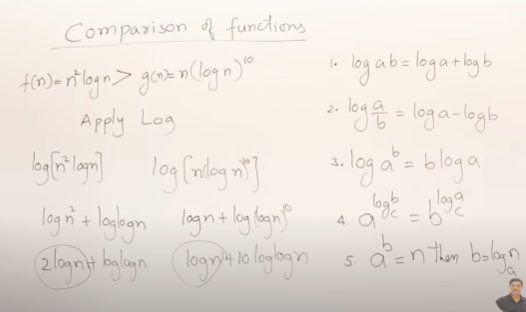 Comparison of functions
f(n)=n²logn > g(n)=n(logn)¹⁰
Apply Log
log[n²logn]    log[n(logn)¹⁰]
logn² + loglogn    logn+log(logn)¹⁰
2logn+loglogn    logn+10loglogn
1. logab=loga+logb
2. log a/b = loga-logb
3. loga^b = bloga
4. a^(log_c b) = b^(log_c a)
5. a^b=n then b=log_a n